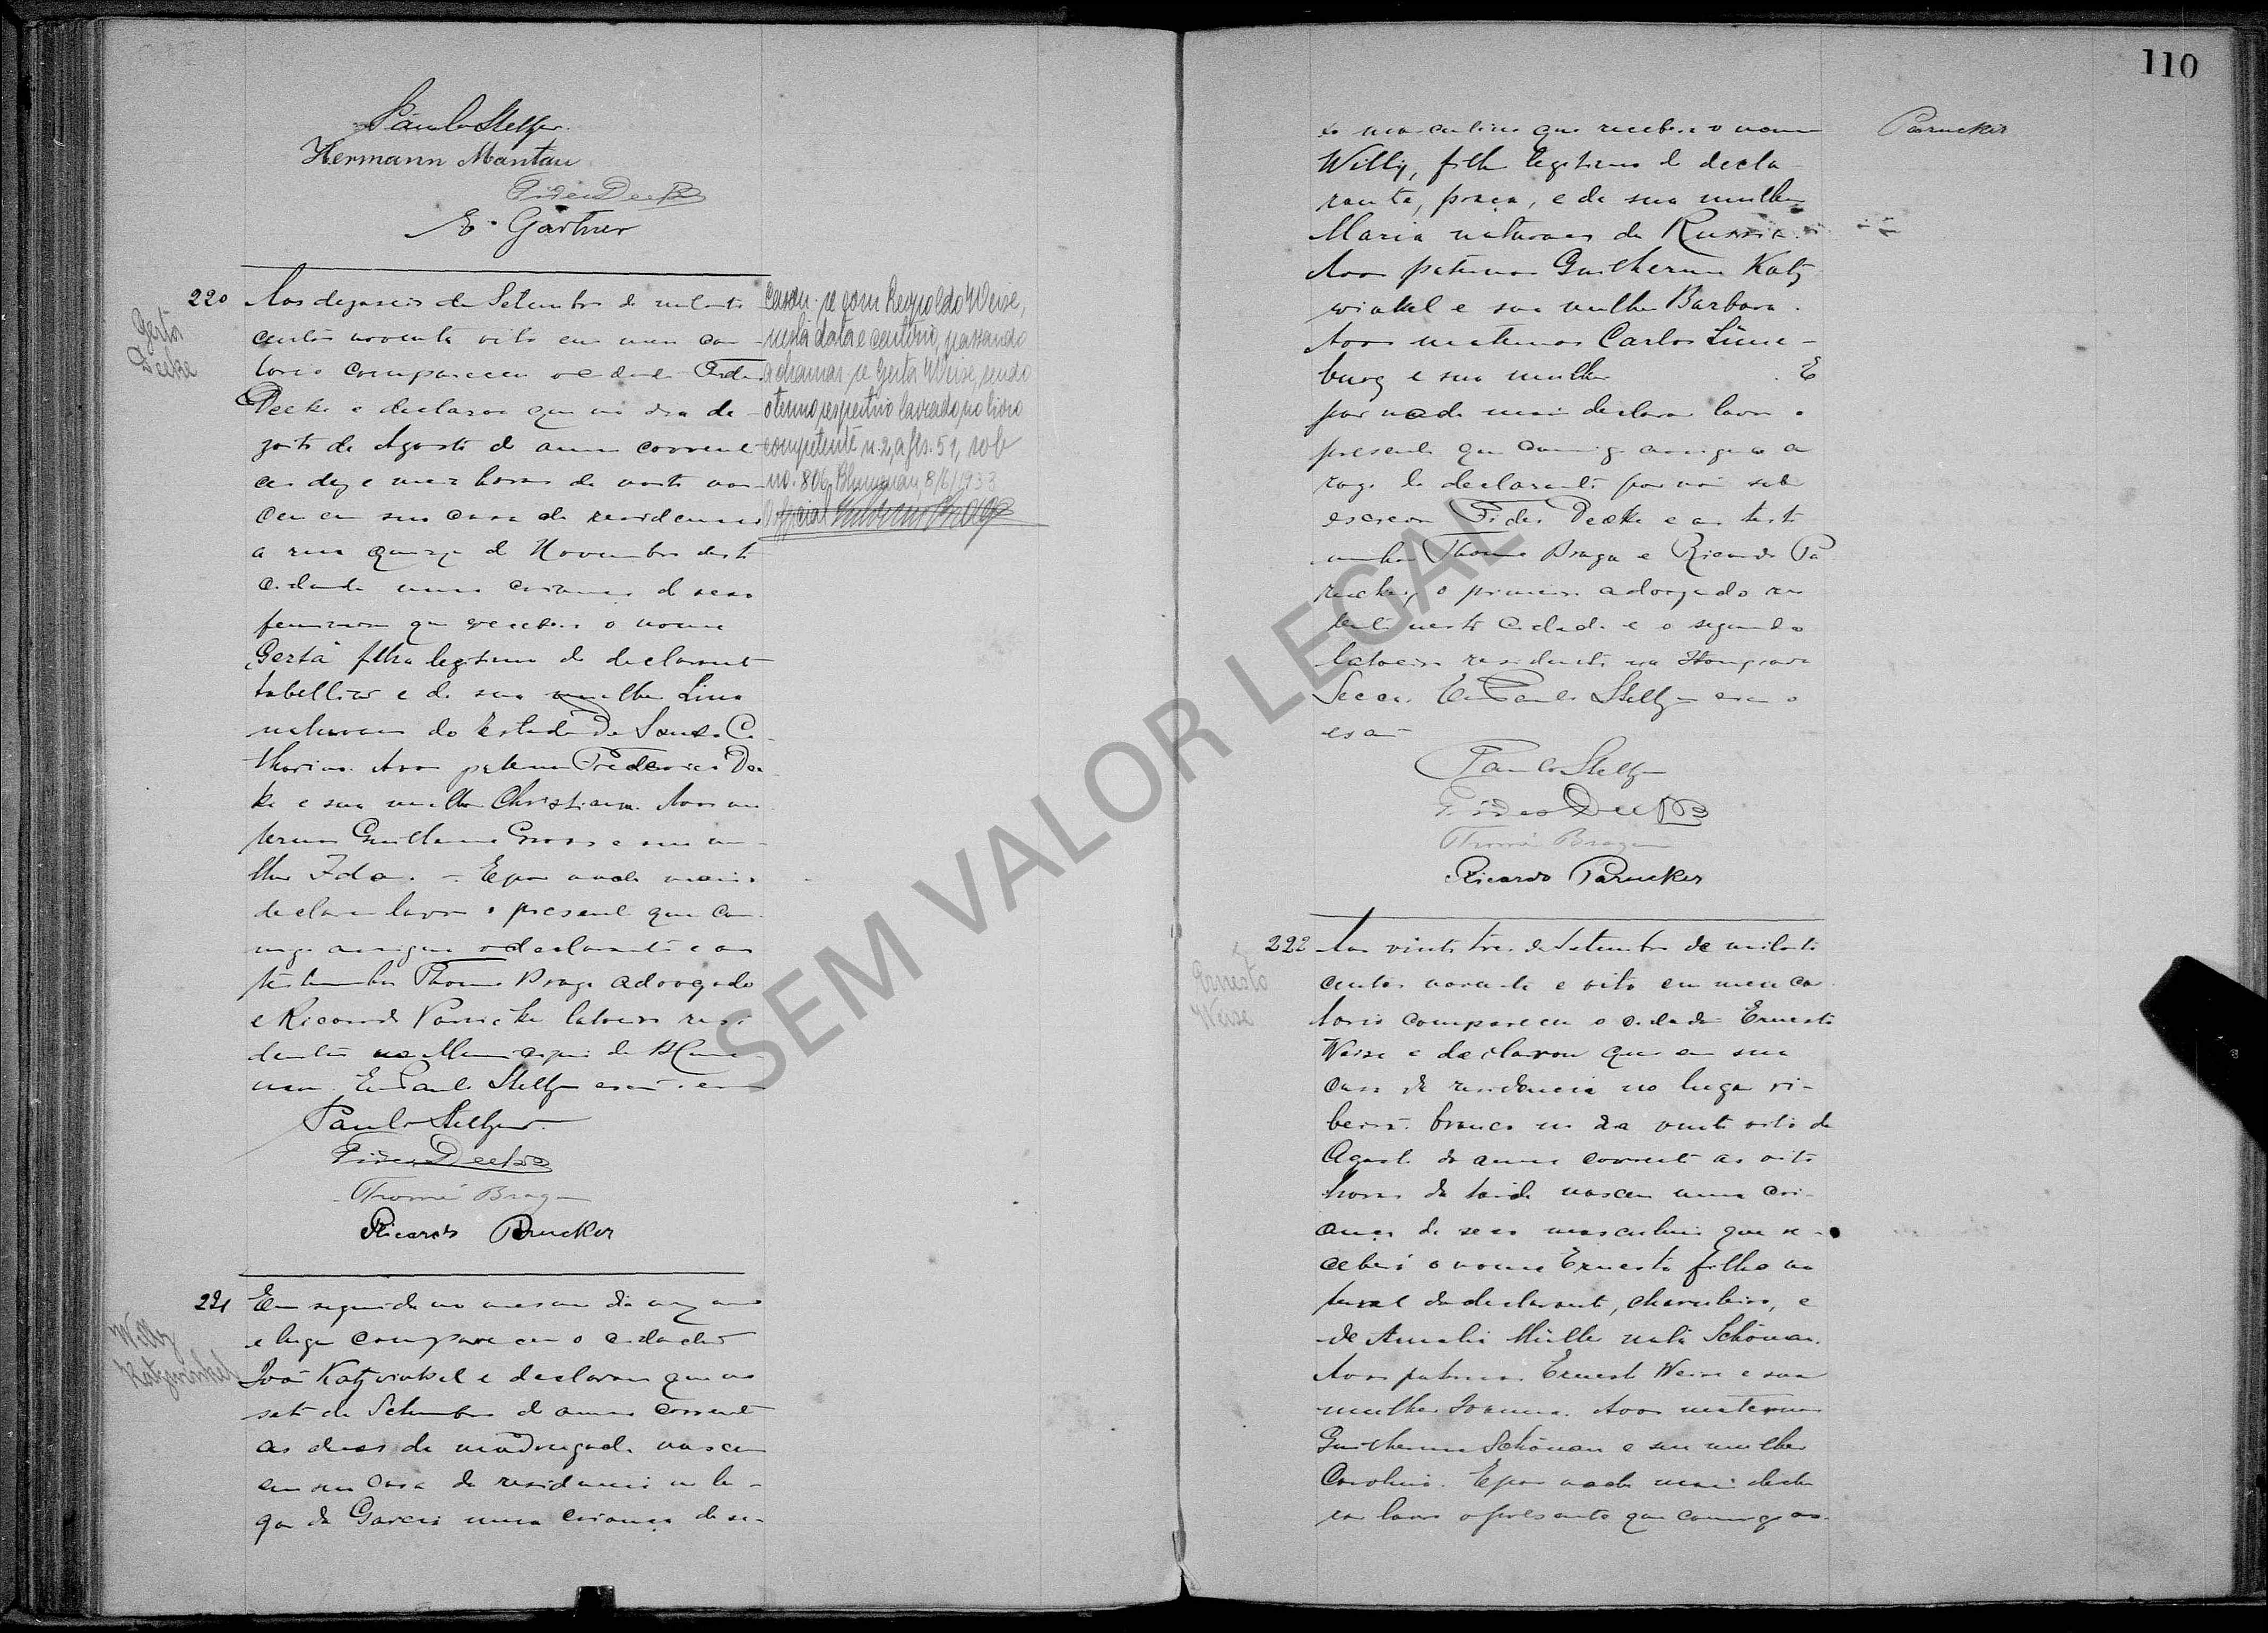 Paulo Stelzer
Hermann Mantau
Fides Deeke
E. Gärtner
220
Gerta
Deeke
Aos dezaseis de Setembro de mil oito
centos noventa oito em meu car-
torio compareceu o cidadão Fides
Deeke e declarou que no dia de-
zoito de Agosto do anno corrente
as dez e meia horas da noite nas-
ceu em sua casa de residencia
a rua quinze de Novembro desta
cidade uma criança do sexo
feminino que recebeu o nome
Gerta filha legitima do declarante
tabellião e de sua mulher Lina
naturaes do Estado De Santa Ca-
tharina. Avos paternos Frederico Dee-
ke e sua mulher Christiana. Avos ma-
ternos Guilherme Gross e sua mu-
lher Ida. - E por nada mais
declarar lavro o presente que com-
migo assigna o declarante e as
testemunhas Thomé Braga advogado
e Ricardo Parucker latoeiro resi-
dentes no Municipio de Blume-
nau. Eu Paulo Stelzer
Paulo Stelzer
Fides Deeke
Thomé Braga
Ricardo Parucker
Casou-se com Reynoldo Weise,
nesta data e cartorio, passando
a chamar-se Gerta Weise, sendo
o termo respectivo lavrado no livro
competente n. 2, a fls. 51, sob
no. 806, Blumenau, 8/6/1933
O official
221
Willy
Katzwinkel
Em seguida no mesmo dia mez anno
e lugar compareceu o cidadão
João Katzwinkel e declarou que no
sete de Setembro do anno corrente
as duas da madrugada nasceu
em sua casa de residencia no lu-
gar de Garcia uma criança do se-
110
xo masculino que recebeu o nome
Willy, filho legitimo do decla-
rante, e de sua mulher
Maria naturaes da Russia.
Avos paternos Guilherme Katz-
winkel e sua mulher Barbara.
Avos maternos Carlos Lüne-
burg e sua mulher . E
por nada mais declarar lavro o
presente que commigo assigna a
rogo do declarante por não saber
escrever Fides Deeke e as teste-
munhas Thomé Braga e Ricardo Pa-
rucker, o primeiro advogado resi-
dente nesta cidade e o segundo
latoeiro residente na Itoupava
Secca. Eu Paulo Stelzer
Parucker
Paulo Stelzer
Fides Deeke
Thomé Braga
Ricardo Parucker
222
Ernesto
Weise
Aos vinte tres de Setembro de mil oito
centos noventa e oito em meu car-
torio compareceu o cidadão Ernesto
Weise e declarou que em sua
casa de residencia no lugar ri-
beirão branco no dia vinte oito de
Agosto do anno corrente as oito
horas da tarde nasceu uma cri-
ança do sexo masculino que re-
ceberá o nome Ernesto filho na-
tural do declarante, charuteiro, e
de Amalia Müller nata Schönau.
Avos paternos Ernesto Weise e sua
mulher Joanna. Avos maternos
Guilherme Schönau e sua mulher
Carolina. E por nada mais decla-
rar lavro o presente que commigo as-
SEM VALOR LEGAL